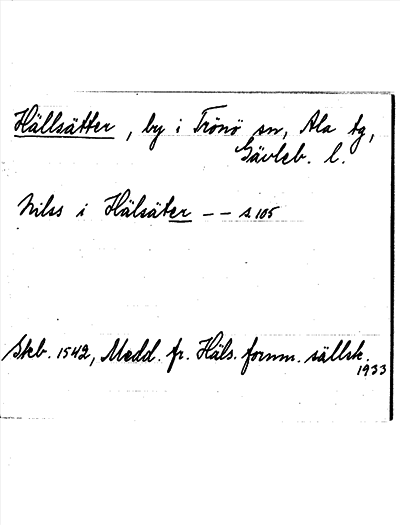 Hällsätter, by i Trönö sn, Ala tg,
Gävleb. l.
Nilss i Hälsäter -- s. 105
Skb. 1542, Medd. fr. Häls. fornm. sällsk.
1933